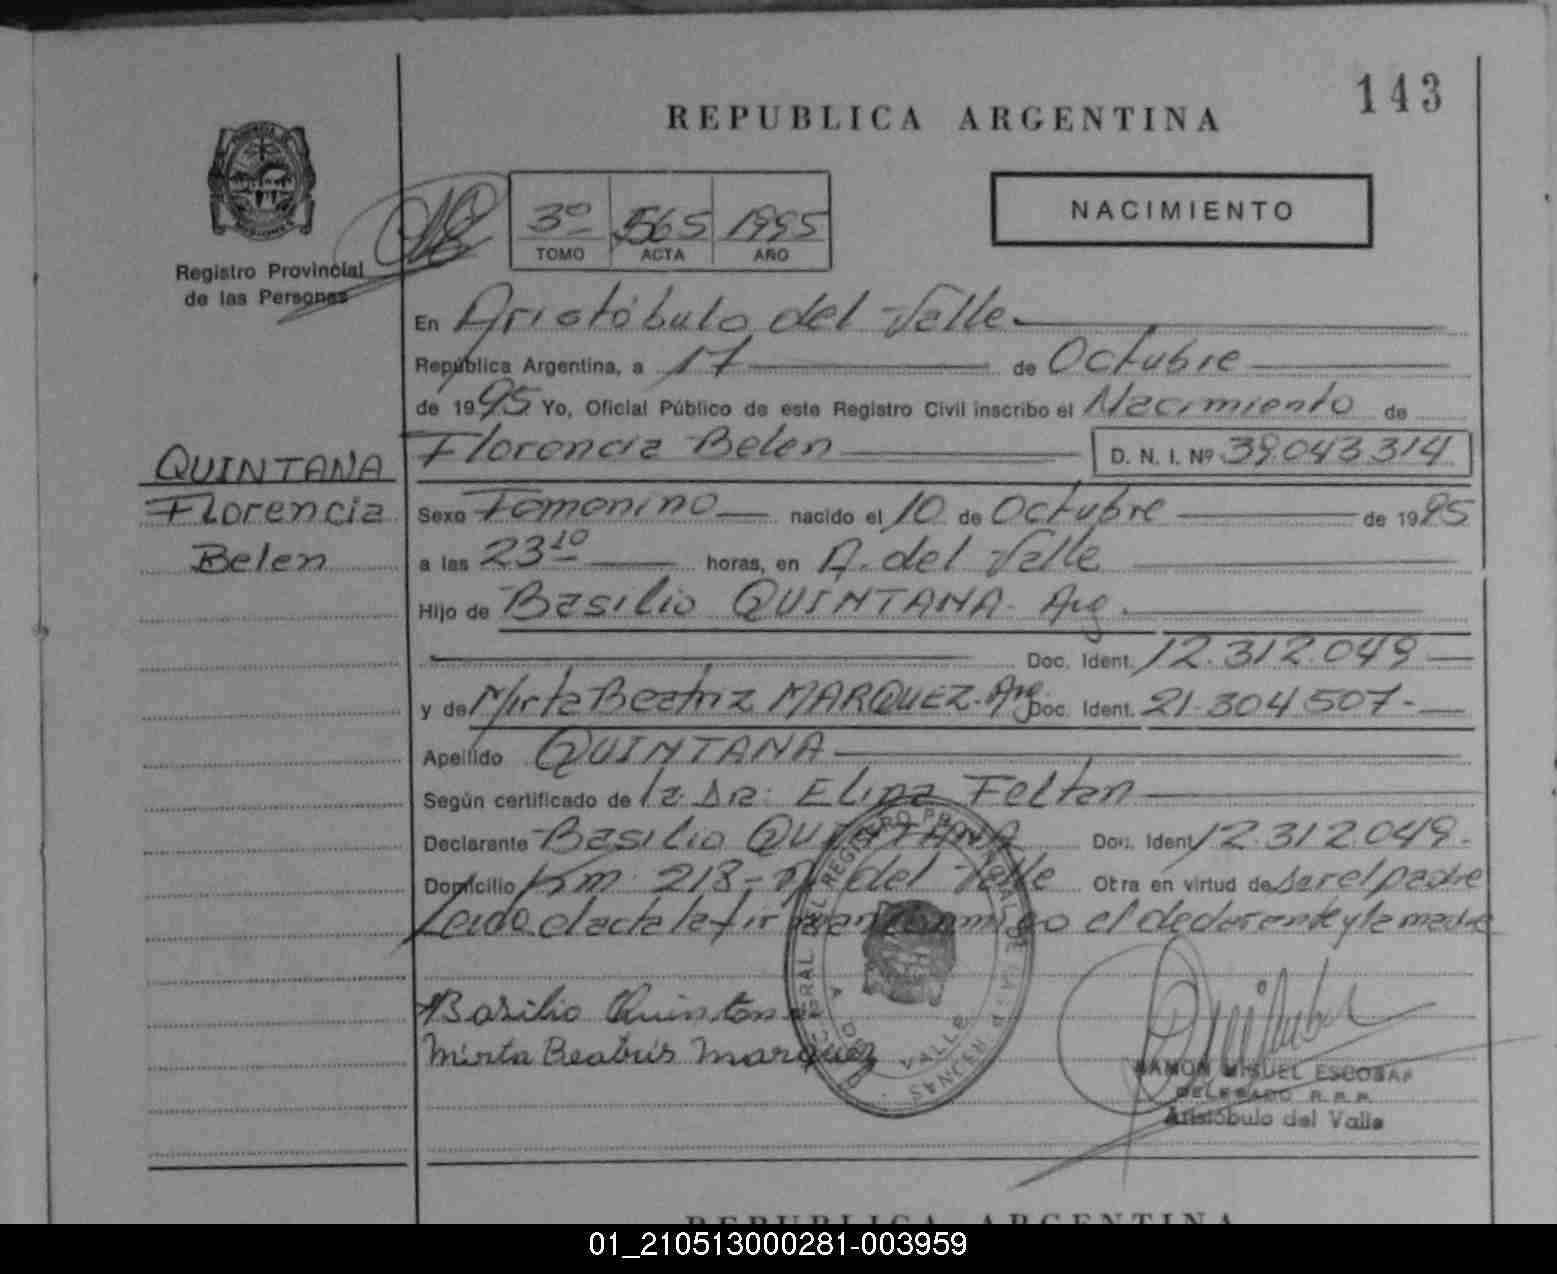 143
REPUBLICA ARGENTINA
NACIMIENTO
3º 565 1995
TOMO ACTA AÑO
Registro Provincial
de las Personas
En Aristóbulo del Valle
República Argentina, a 17 de Octubre
de 1995 Yo, Oficial Público de este Registro Civil inscribo el Nacimiento de
Florencia Belen D. N. I. Nº 39.043.314
QUINTANA
Florencia
Belen
Sexo Femenino nacido el 10 de Octubre de 1995
a las 23 10 horas, en A. del Valle
Hijo de Basilio QUINTANA - Arg.
Doc. Ident. 12.312.049
y de Mirta Beatriz MARQUEZ - Arg. Doc. Ident. 21.304.507 -
Apellido QUINTANA
Según certificado de la Dra: Elina Feltan
Declarante Basilio QUINTANA Doc. Ident 12.312.049 -
Domicilio Km. 213 - A. del Valle Otra en virtud de ser el padre
Leida el acta la firman conmigo el declarante y la madre
Basilio Quintana
Mirta Beatris Marquez
RAMON MIGUEL ESCOBAR
DELEGADO R.P.P.
Aristóbulo del Valle
REPUBLICA ARGENTINA
01_210513000281-003959